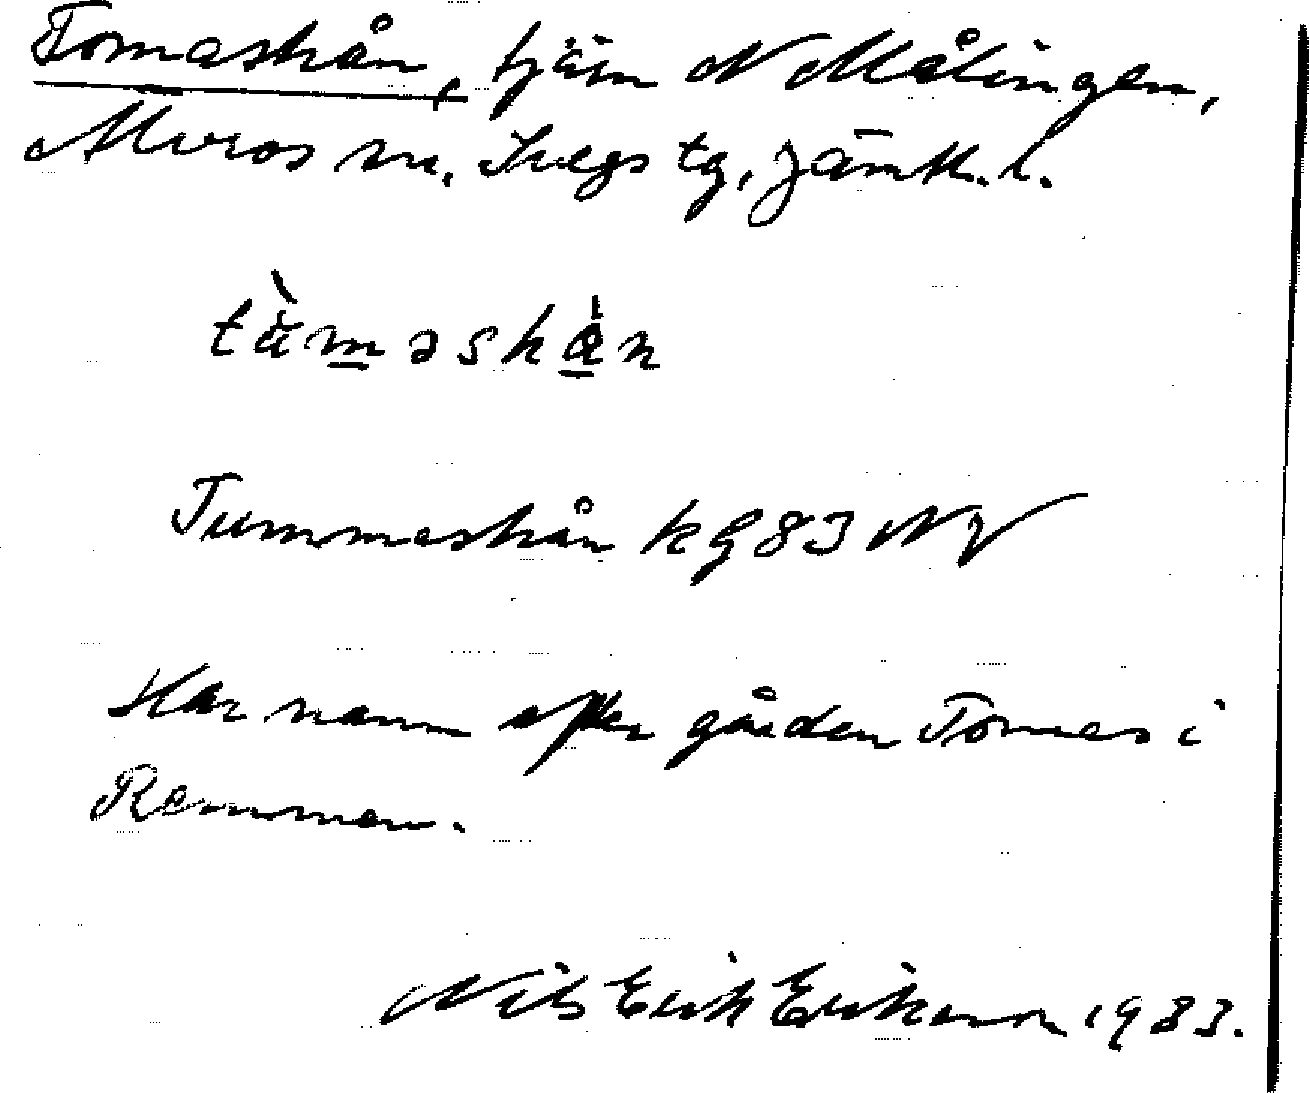 Tomashån, tjärn N Målingen,
Älvros sn, Svegs tg, Jämtl. l.
tàmashàn
Tummashån kg 83 NV
Har namn efter gården Tomas i
Remmen.
Nils Erik Eriksson 1983.